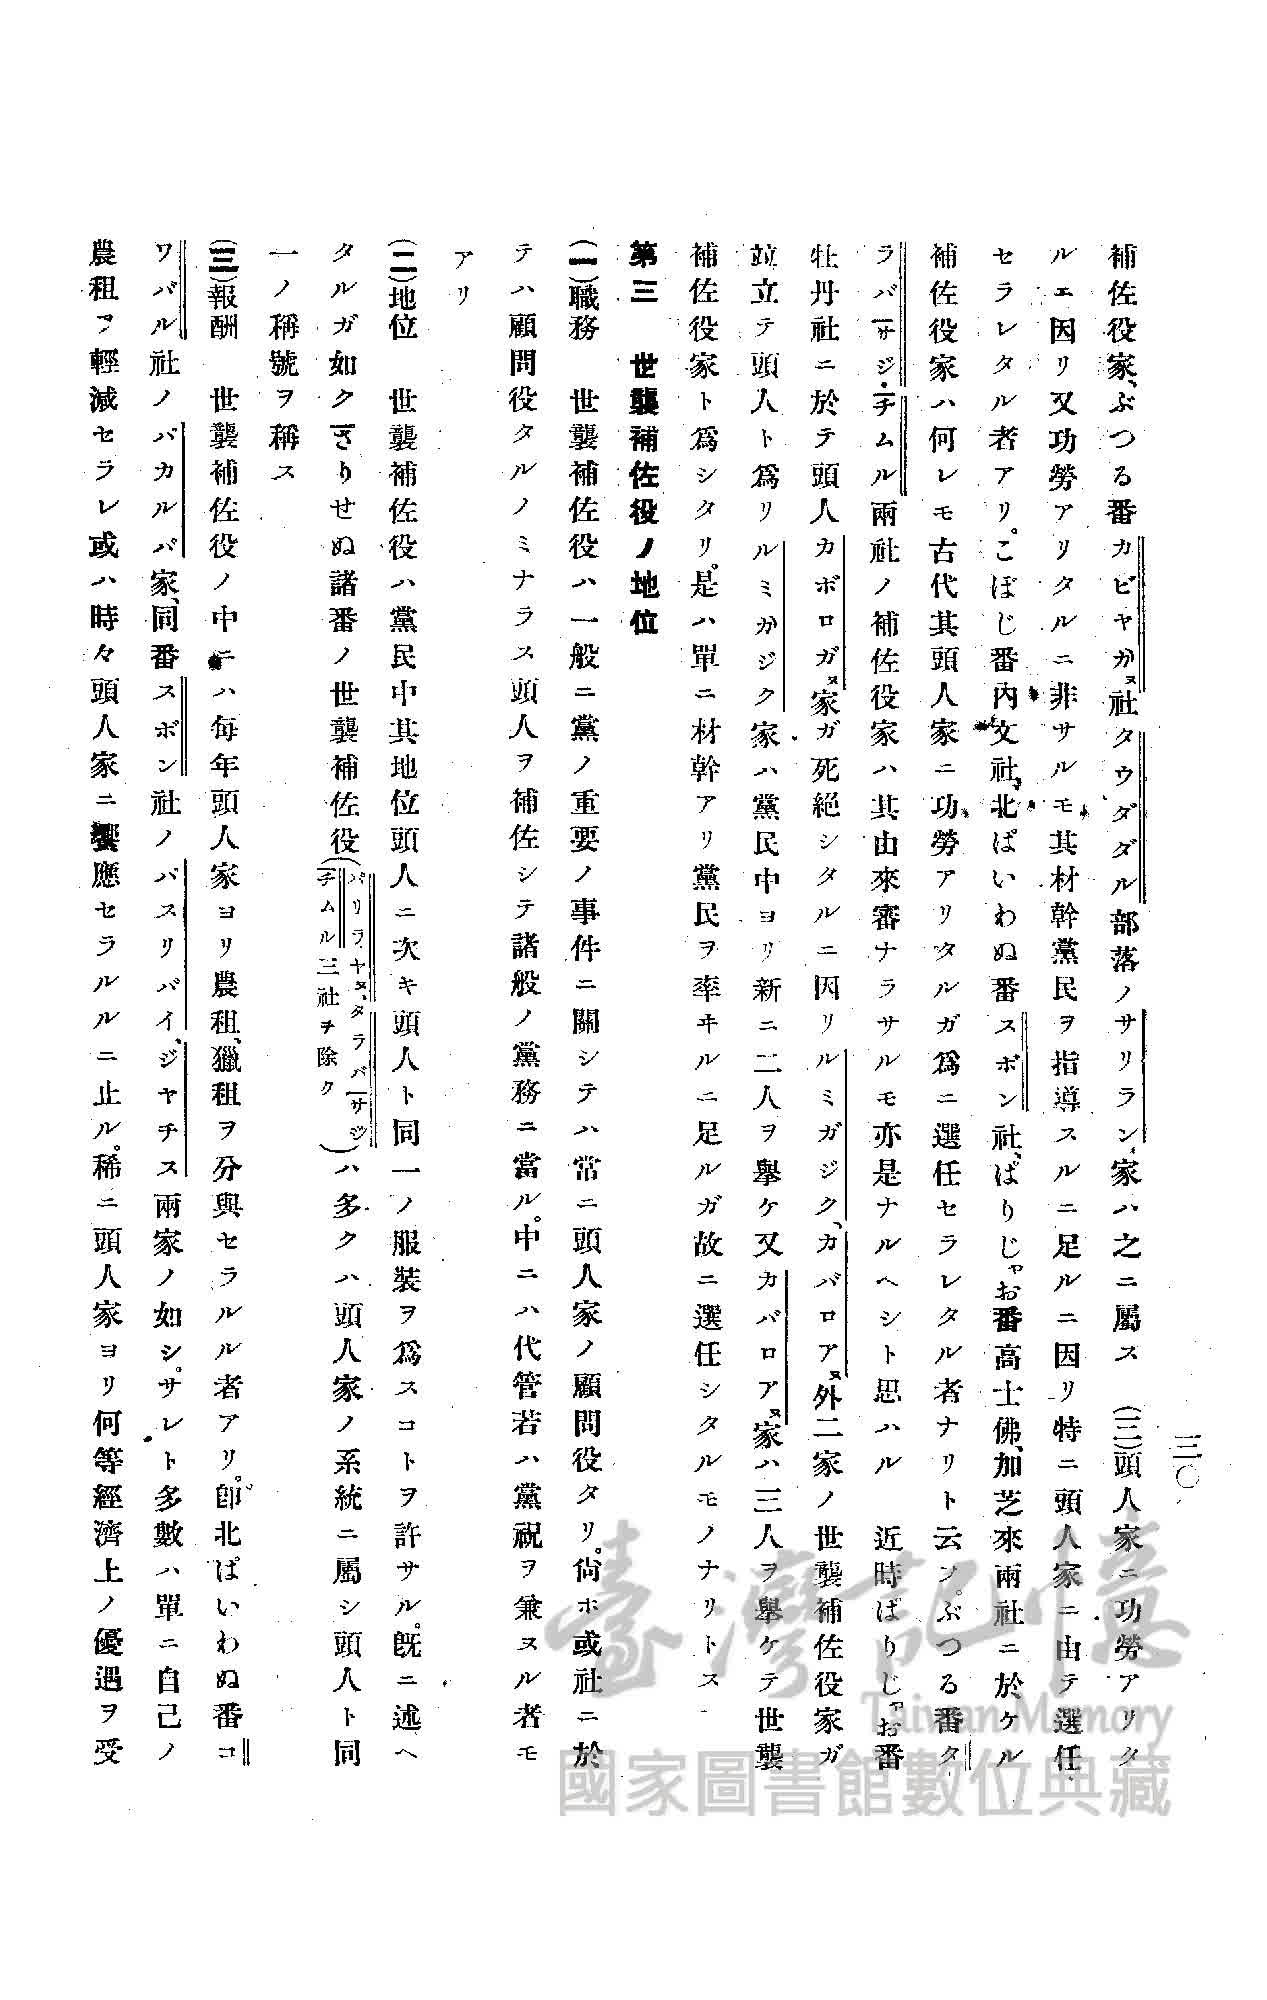 三〇
補佐役家、ぶつる番カビヤガヌ社タウダダル部落ノサリラン家ハ之ニ屬ス (三)頭人家ニ功勞アリタ
ルエ因リ又功勞アリタルニ非サルモ其材幹黨民ヲ指導スルニ足ルニ因リ特ニ頭人家ニ由テ選任
セラレタル者アリ。こぼじ番内文社、北ぱいわぬ番スボン社、ぱりじゃお番高士佛、加芝來兩社ニ於ケル
補佐役家ハ何レモ古代其頭人家ニ功勞アリタルガ爲ニ選任セラレタル者ナリト云フ。ぶつる番タ
ラバーサジ・チムル兩社ノ補佐役家ハ其由來審ナラサルモ亦是ナルヘシト思ハル 近時ぱりじゃお番
牡丹社ニ於テ頭人カボロガヌ家ガ死絕シタルニ因リルミガジク、カバロアヌ外二家ノ世襲補佐役家ガ
竝立テ頭人ト爲リルミガジク家ハ黨民中ヨリ新ニ二人ヲ擧ケ又カバロアヌ家ハ三人ヲ擧ケテ世襲
補佐役家ト爲シタリ。是ハ單ニ材幹アリ黨民ヲ率ヰルニ足ルガ故ニ選任シタルモノナリトス
第三 世襲補佐役ノ地位
(一)職務 世襲補佐役ハ一般ニ黨ノ重要ノ事件ニ關シテハ常ニ頭人家ノ顧問役タリ。尙ホ或社ニ於
テハ顧問役タルノミナラス頭人ヲ補佐シテ諸般ノ黨務ニ當ル。中ニハ代管若ハ黨祝ヲ兼ヌル者モ
アリ
(二)地位 世襲補佐役ハ黨民中其地位頭人ニ次キ頭人ト同一ノ服裝ヲ爲スコトヲ許サル。旣ニ述ヘ
タルガ如クさーりせぬ諸番ノ世襲補佐役(パリラヤヌ、タラバーサジ、チムル三社ヲ除ク)ハ多クハ頭人家ノ系統ニ屬シ頭人ト同
一ノ稱號ヲ稱ス
(三)報酬 世襲補佐役ノ中ニハ每年頭人家ヨリ農租、獵租ヲ分與セラルル者アリ。卽北ぱいわぬ番コ
ワバル社ノバカルバ家、同番スボン社ノバスリバイ、ジヤチス兩家ノ如シ。サレト多數ハ單ニ自己ノ
農租ヲ輕減セラレ或ハ時々頭人家ニ饗應セラルルニ止ル。稀ニ頭人家ヨリ何等經濟上ノ優遇ヲ受
臺灣記憶
Taiwan Memory
國家圖書館數位典藏